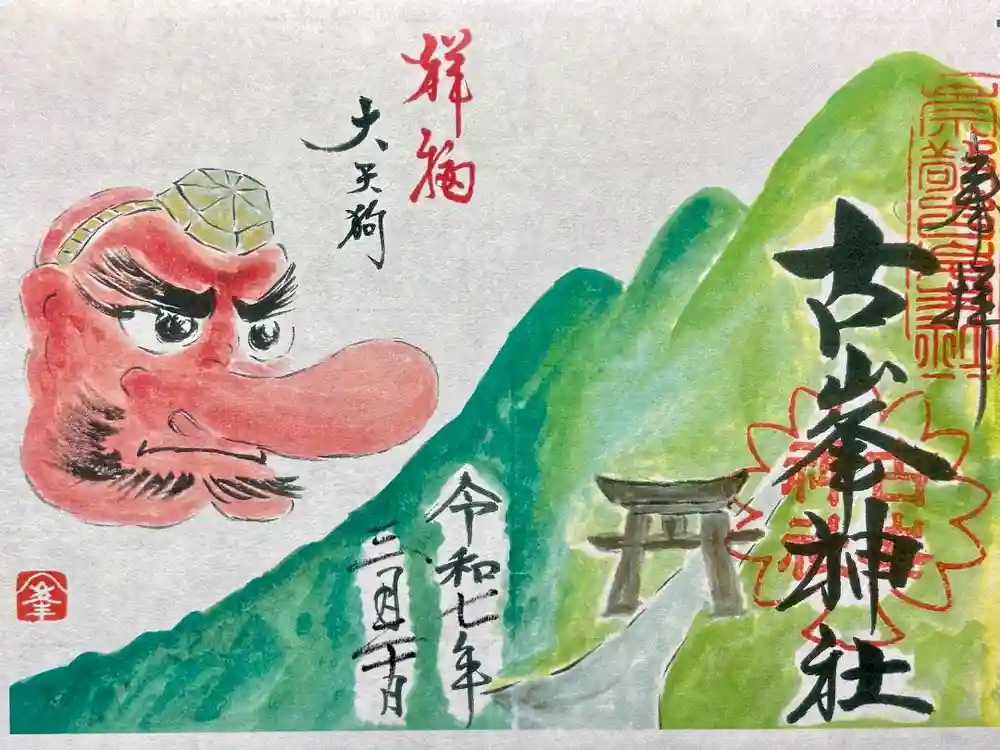 奉拝
古峯神社
古峯
神社
祥福
大天狗
令和七年
三月二十日
峯